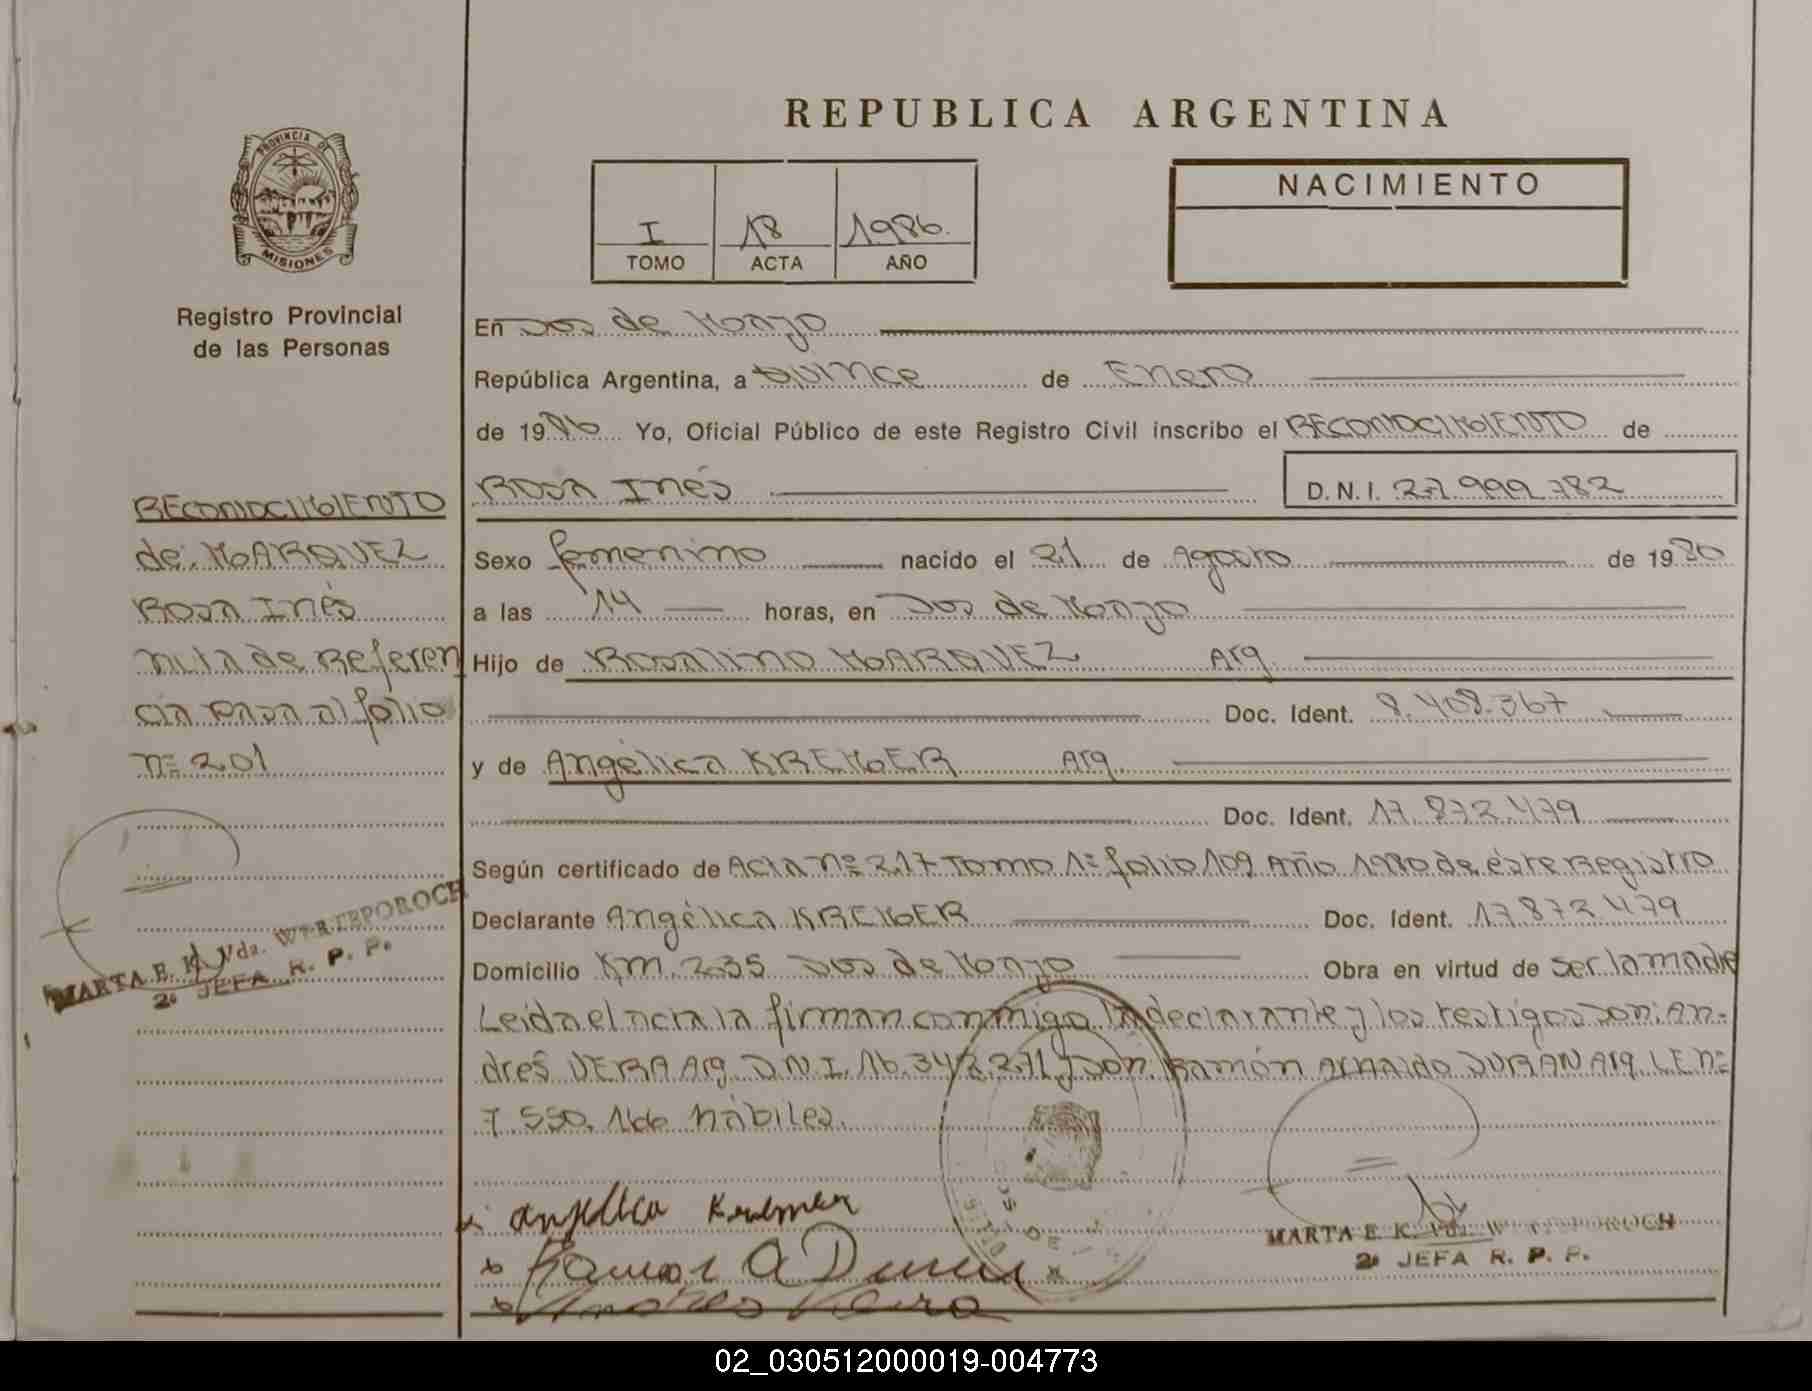 REPUBLICA ARGENTINA
PROVINCIA DE
MISIONES
Registro Provincial
de las Personas
I 18 1986.
TOMO ACTA AÑO
NACIMIENTO
RECONOCIMIENTO
de: MARQUEZ
Rosa Inés
nota de Referen
cia pasa al folio
nº 201
MARTA E. K. Vda.
2º JEFA R. P. P.
En Dos de Mayo
República Argentina, a Quince de Enero
de 1986 Yo, Oficial Público de este Registro Civil inscribo el RECONOCIMIENTO de
Rosa Inés D.N.I. 27.999.782
Sexo femenino nacido el 21 de Agosto de 1980
a las 14 horas, en Dos de Mayo
Hijo de Rosalino MARQUEZ Arg.
Doc. Ident. 8.408.367
y de Angélica KREMER Arg.
Doc. Ident. 17.872.479
Según certificado de Acta nº 217 Tomo 1º folio 109 Año 1980 de éste Registro
Declarante Angélica KREMER Doc. Ident. 17.872.479
Domicilio Km. 235 Dos de Mayo Obra en virtud de ser la madre
Leida el acta la firman conmigo la declarante y los testigos Don: An-
drés VERA Arg. D.N.I. 16.342.271 y Don: Ramón Arnaldo DURAN Arg. L.E. nº
7.550.166 hábiles.
Angelica Kremer
Ramon A Duran
Andres Vera
MARTA E. K. Vda.
2º JEFA R. P. P.
02_030512000019-004773